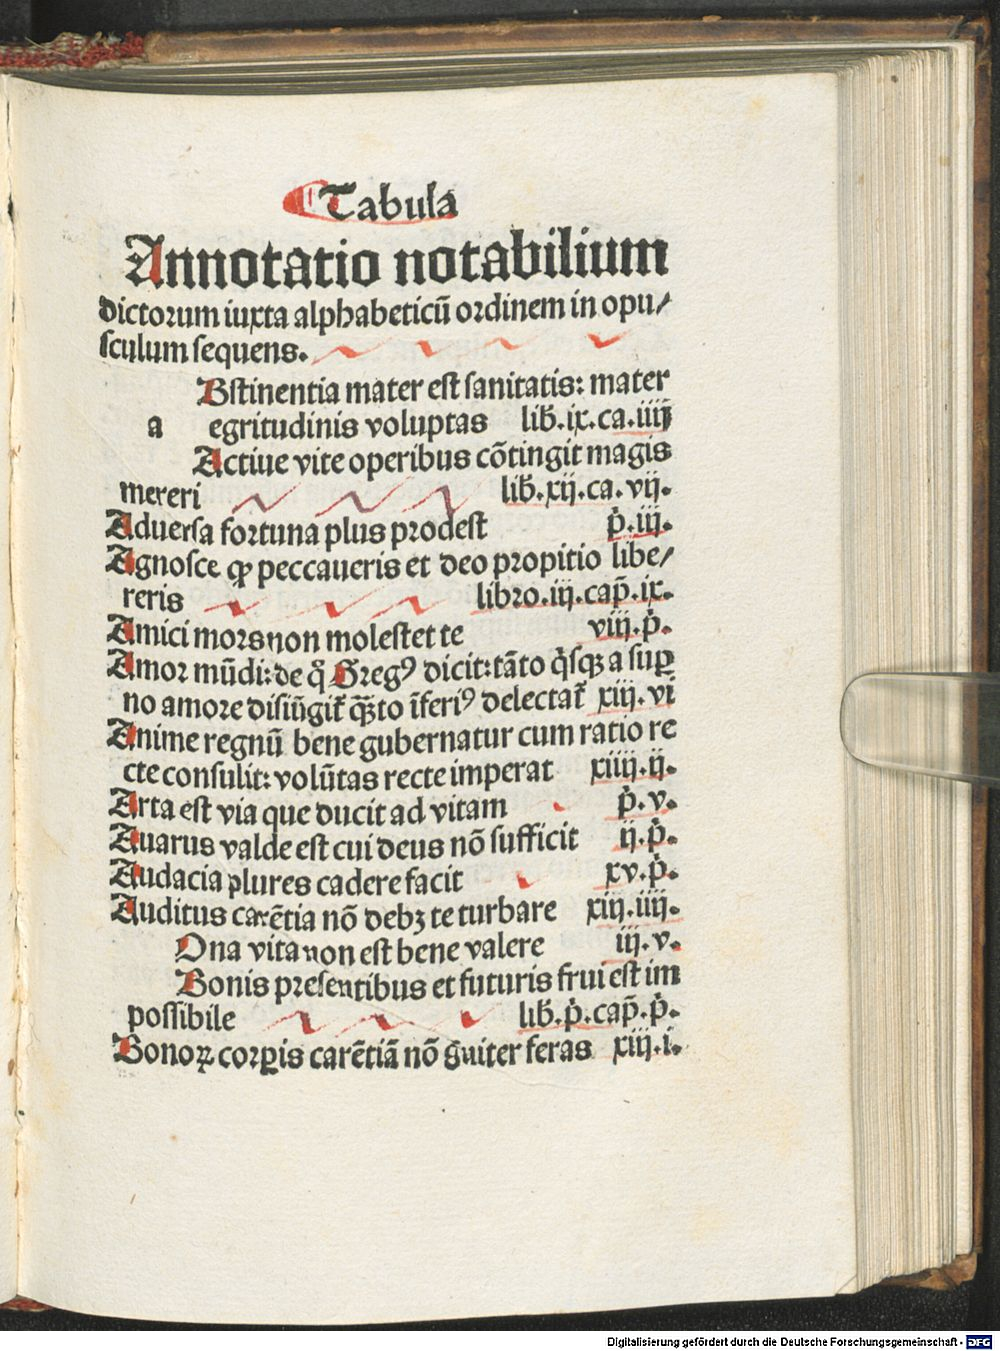 ¶ Tabula
Annotatio notabilium
dictorum iuxta alphabeticū ordinem in opu/
sculum sequens.
Bstinentia mater est sanitatis: mater
a egritudinis voluptas lib̄.ix.ca.iiij
Actiue vite operibus cōtingit magis
mereri lib̄.xij.ca.vij.
Aduersa fortuna plus prodest p̊.iij.
Agnosce ꝙ peccaueris et deo propitio libe/
reris libro.iij.cap̄.ix.
Amici mors non molestet te viij.p̊.
Amor mūdi: de q̊ Gregꝰ dicit: tāto q̊sqꝫ a suꝑ
no amore disiūgit᷑ qᷓꝫto īferiꝰ delectat᷑ xiij.vi
Anime regnū bene gubernatur cum ratio re
cte consulit: volūtas recte imperat xiiij.ij.
Arta est via que ducit ad vitam p̊.v.
Auarus valde est cui deus nō sufficit ij.p̊.
Audacia plures cadere facit xv.p̊.
Auditus carētia nō debꝫ te turbare xiij.iiij.
Ona vita non est bene valere iij.v.
Bonis presentibus et futuris frui est im
possibile lib̄.p̊.cap̄.p̊.
Bonoꝝ corꝑis carētiā nō g̃uiter feras xiij.i.
Digitalisierung gefördert durch die Deutsche Forschungsgemeinschaft - DFG